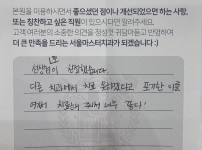 본원을 이용하시면서 좋으셨던 점이나 개선되었으면 하는 사항,
또는 칭찬하고 싶은 직원이 있으시다면 알려주세요.
고객 여러분의 소중한 의견을 정성껏 귀담아듣고 반영하여
더 큰 만족을 드리는 서울마스터치과가 되겠습니다 :)
선생님이 친절했습니다
다른 치과에서 치료 못하겠다고 포기한 이를
치료 너무 좋다!